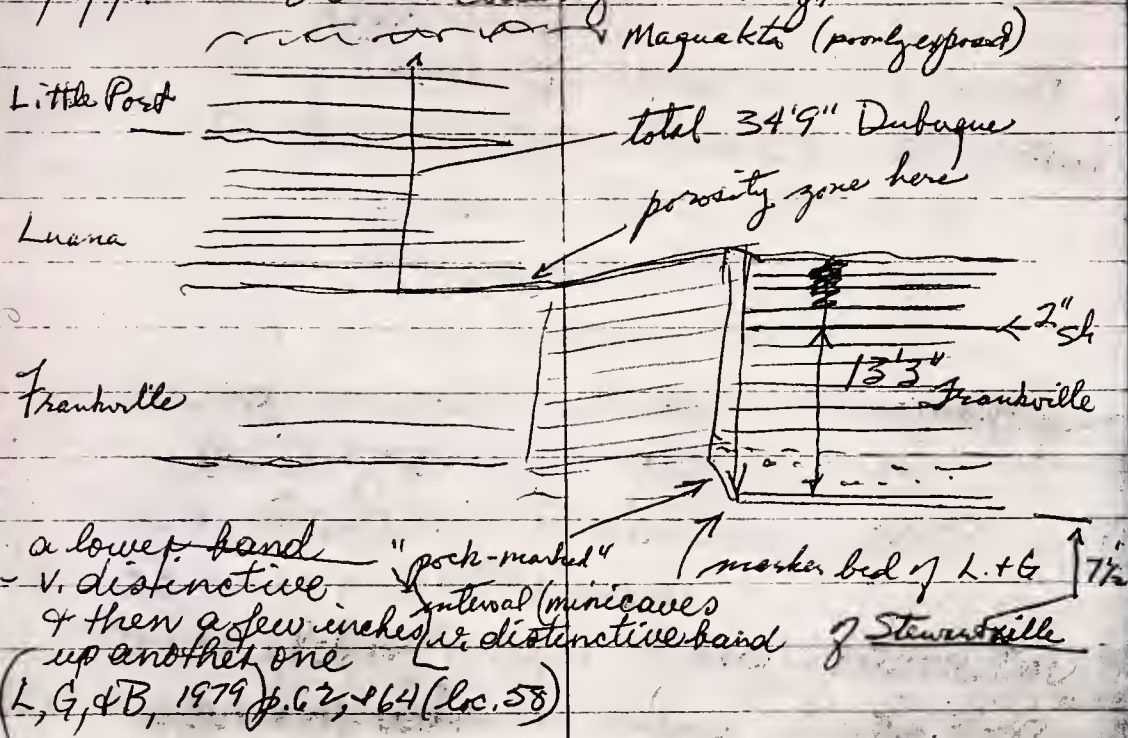 Maquakta (poorly exposed)
Little Port
total 34'9" Dubuque
porosity zone here
Luana
2" sh
13'3"
Frankville
Frankville
a lower band
- v. distinctive
& then a few inches
up another one
"pock-marked"
interval (minicaves
v. distinctive band
marker bed of L+G
7½"
of Stewartville
(L, G, &B, 1979) p.62, &64 (loc. 58)